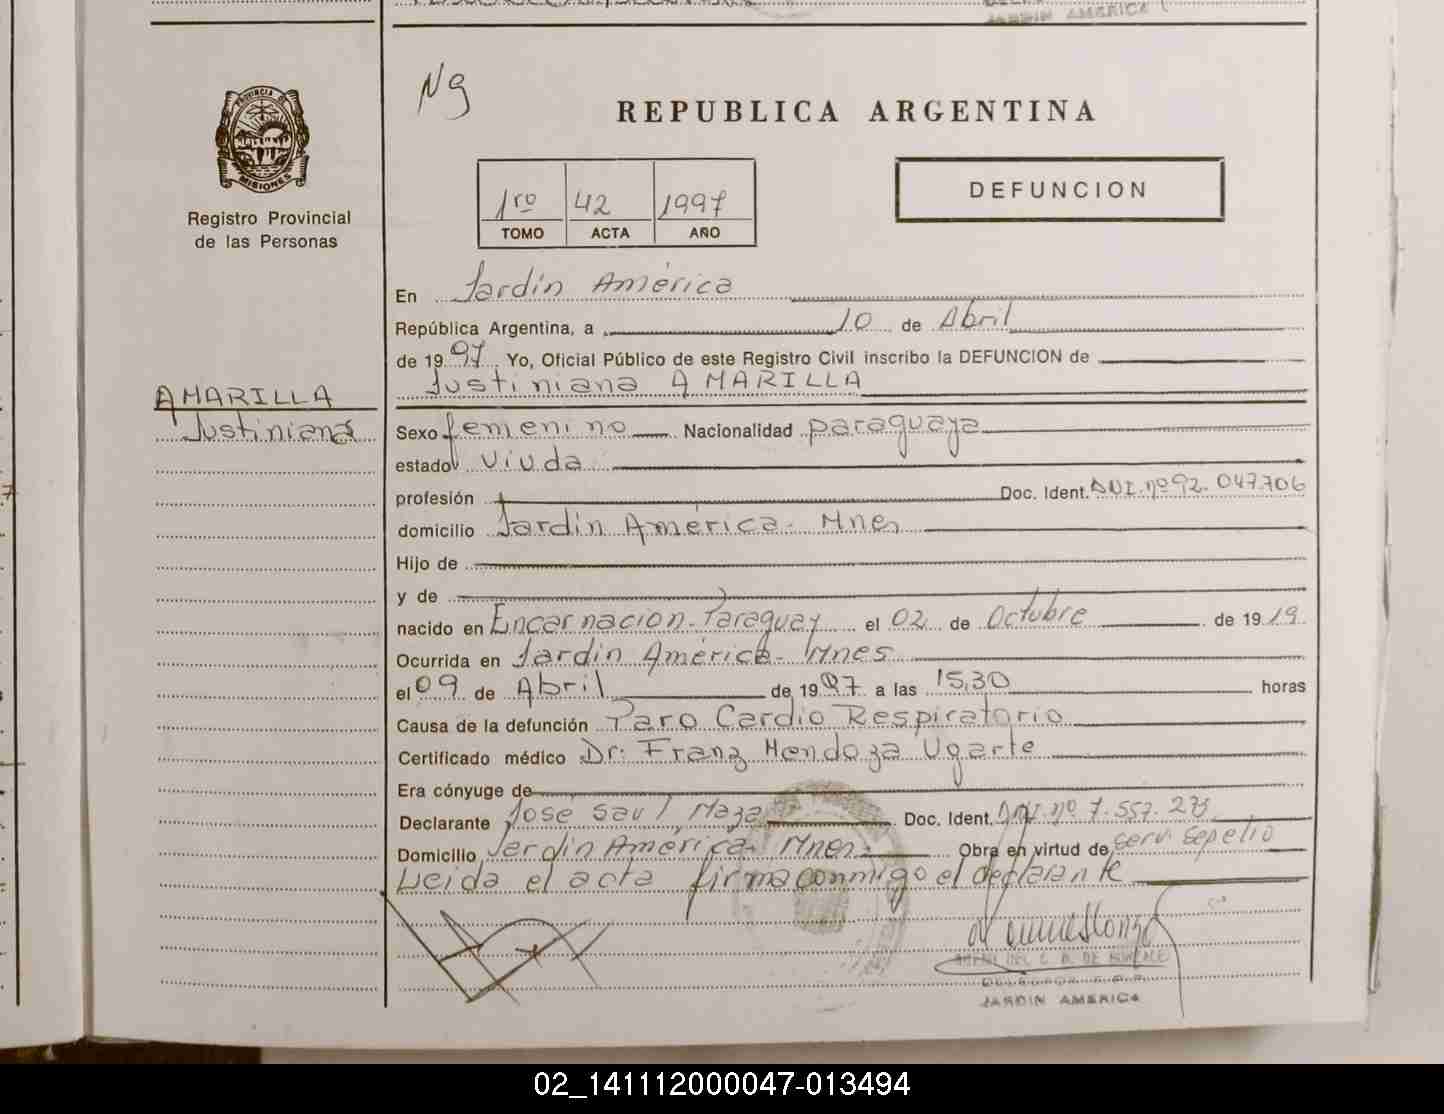 JARDIN AMERICA
Ng
PROVINCIA DE
MISIONES
Registro Provincial
de las Personas
REPUBLICA ARGENTINA
DEFUNCION
1ro 42 1997
TOMO ACTA AÑO
En Jardín América
República Argentina, a 10 de Abril
de 1997 Yo, Oficial Público de este Registro Civil inscribo la DEFUNCION de
Justiniana AMARILLA
AMARILLA
Justiniana
Sexo femenino Nacionalidad paraguaya
estado viuda
profesión Doc. Ident. DNI. nº 92.047.706
domicilio Jardín América- Mnes
Hijo de
y de
nacido en Encarnación-Paraguay el 02 de Octubre de 1919
Ocurrida en Jardín América- Mnes
el 09 de Abril de 1997 a las 15,30 horas
Causa de la defunción Paro Cardio Respiratorio
Certificado médico Dr: Franz Mendoza Ugarte
Era cónyuge de
Declarante José Saul Maza Doc. Ident. DNI. nº 7.557.273
Domicilio Jardín América- Mnes- Obra en virtud de serv. sepelio
Leida el acta firma conmigo el declarante
JARDIN AMERICA
02_141112000047-013494